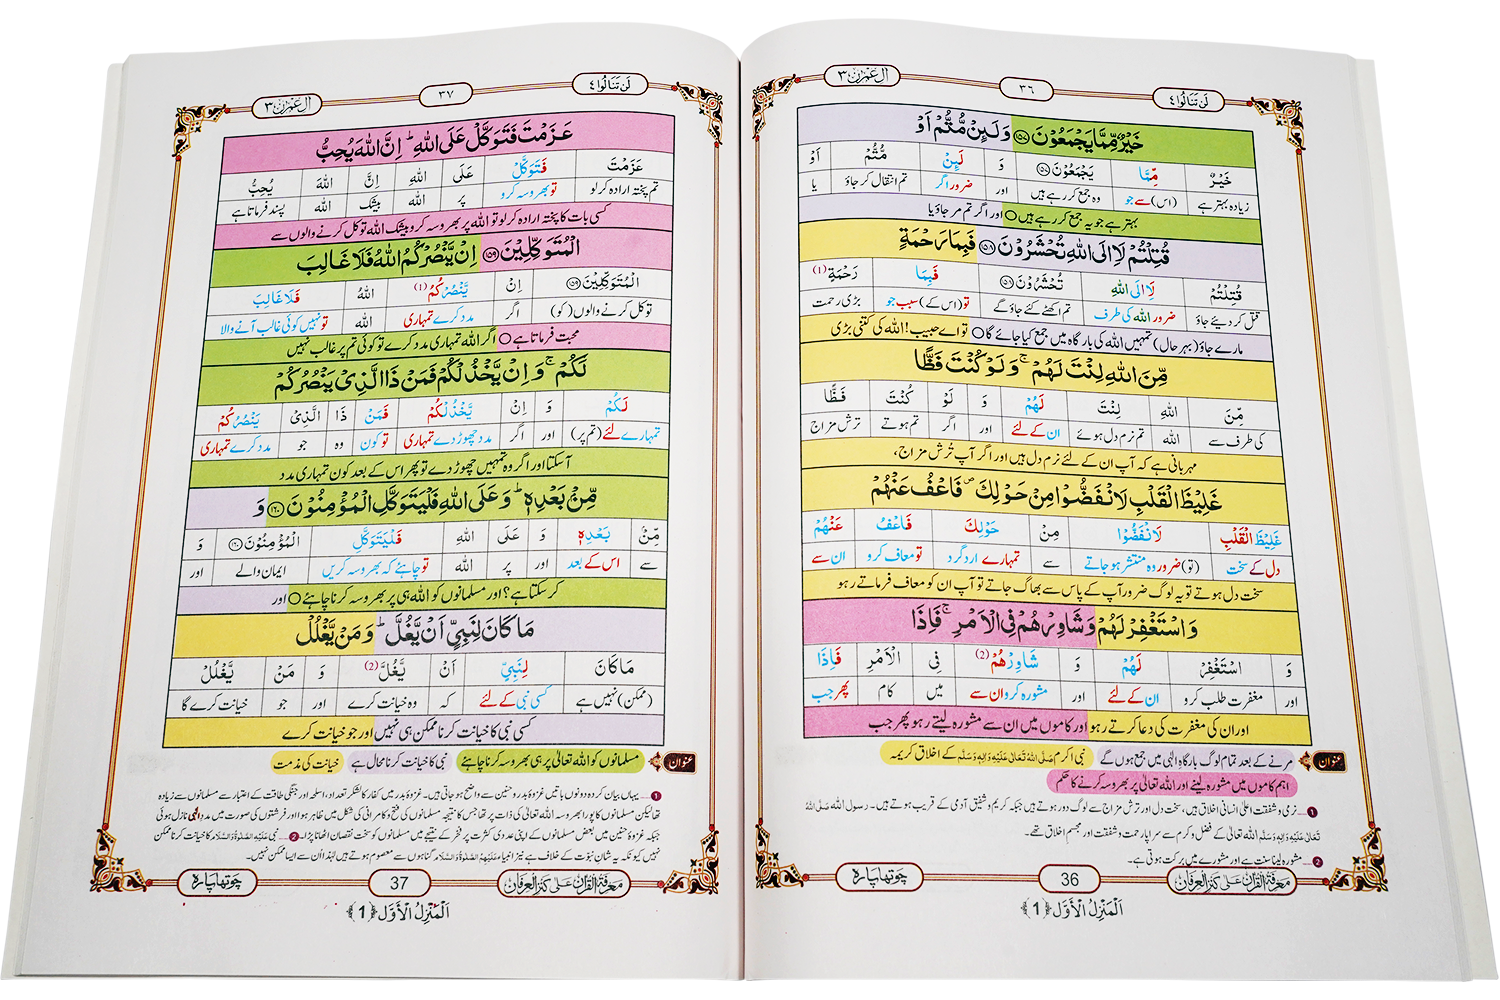 لَنْ تَنَالُوا ٤
٣٦
اٰلِ عِمْرٰن ٣
خَيْرٌ مِّمَّا يَجْمَعُوْنَ ﴿١٥٧﴾ وَ لَىِٕنْ مُّتُّمْ اَوْ
خَيْرٌ مِّمَّا يَجْمَعُوْنَ ﴿١٥٧﴾ وَ لَىِٕنْ مُّتُّمْ اَوْ
زیادہ بہتر ہے (اس) سے جو وہ جمع کر رہے ہیں اور ضرور اگر تم انتقال کر جاؤ یا
بہتر ہے جو یہ جمع کر رہے ہیں ○ اور اگر تم مر جاؤ یا
قُتِلْتُمْ لَاۡ اِلَى اللّٰهِ تُحْشَرُوْنَ ﴿١٥٨﴾ فَبِمَا رَحْمَةٍ
قُتِلْتُمْ لَاۡ اِلَى اللّٰهِ تُحْشَرُوْنَ ﴿١٥٨﴾ فَبِمَا رَحْمَةٍ (1)
قتل کر دیئے جاؤ ضرور اللہ کی طرف تم اکٹھے کئے جاؤ گے تو (اس کے) سبب جو بڑی رحمت
مارے جاؤ (بہر حال) تمہیں اللہ کی بارگاہ میں جمع کیا جائے گا ○ تو اے حبیب! اللہ کی کتنی بڑی
مِّنَ اللّٰهِ لِنْتَ لَهُمْ ۚ وَ لَوْ كُنْتَ فَظًّا
مِّنَ اللّٰهِ لِنْتَ لَهُمْ وَ لَوْ كُنْتَ فَظًّا
کی طرف سے اللہ تم نرم دل ہوئے ان کے لئے اور اگر تم ہوتے ترش مزاج
مہربانی ہے کہ آپ ان کے لئے نرم دل ہیں اور اگر آپ تُرش مزاج،
غَلِيْظَ الْقَلْبِ لَانْفَضُّوْا مِنْ حَوْلِكَ ۪ فَاعْفُ عَنْهُمْ
غَلِيْظَ الْقَلْبِ لَانْفَضُّوْا مِنْ حَوْلِكَ فَاعْفُ عَنْهُمْ
دل کے سخت (تو) ضرور وہ منتشر ہو جاتے سے تمہارے ارد گرد تو معاف کرو ان سے
سخت دل ہوتے تو یہ لوگ ضرور آپ کے پاس سے بھاگ جاتے تو آپ ان کو معاف فرماتے رہو
وَ اسْتَغْفِرْ لَهُمْ وَ شَاوِرْهُمْ فِی الْاَمْرِ ۚ فَاِذَا
وَ اسْتَغْفِرْ لَهُمْ وَ شَاوِرْهُمْ (2) فِی الْاَمْرِ فَاِذَا
اور مغفرت طلب کرو ان کے لئے اور مشورہ کرو ان سے میں کام پھر جب
اور ان کی مغفرت کی دعا کرتے رہو اور کاموں میں ان سے مشورہ لیتے رہو پھر جب
عنوان مرنے کے بعد تمام لوگ بارگاہِ الٰہی میں جمع ہوں گے نبی اکرم صَلَّی اللہُ تَعَالٰی عَلَیْہِ وَاٰلِہٖ وَسَلَّم کے اخلاقِ کریمہ
اہم کاموں میں مشورہ لینے اور اللہ تعالیٰ پر بھروسہ کرنے کا حکم
1 ... نرمی و شفقت اعلیٰ انسانی اخلاق ہیں، سخت دل اور ترش مزاج سے لوگ دور ہوتے ہیں جبکہ کریم و شفیق آدمی کے قریب ہوتے ہیں۔ رسول اللہ صَلَّی اللہُ
تَعَالٰی عَلَیْہِ وَاٰلِہٖ وَسَلَّم اللہ تعالیٰ کے فضل و کرم سے سراپا رحمت و شفقت اور مجسم اخلاق تھے۔
2 ... مشورہ لینا سنت ہے اور مشورے میں برکت ہوتی ہے۔
معرفۃ القراٰن علیٰ کنز العرفان
36
چوتھا پارہ
اَلْمَنْزِلُ الْاَوَّل ﴿1﴾
لَنْ تَنَالُوا ٤
٣٧
اٰلِ عِمْرٰن ٣
عَزَمْتَ فَتَوَكَّلْ عَلَى اللّٰهِ ؕ اِنَّ اللّٰهَ يُحِبُّ
عَزَمْتَ فَتَوَكَّلْ عَلَى اللّٰهِ اِنَّ اللّٰهَ يُحِبُّ
تم پختہ ارادہ کر لو تو بھروسہ کرو پر اللہ بیشک اللہ پسند فرماتا ہے
کسی بات کا پختہ ارادہ کر لو تو اللہ پر بھروسہ کرو بیشک اللہ توکل کرنے والوں سے
الْمُتَوَكِّلِيْنَ ﴿١٥٩﴾ اِنْ يَّنْصُرْكُمُ اللّٰهُ فَلَا غَالِبَ
الْمُتَوَكِّلِيْنَ ﴿١٥٩﴾ اِنْ يَّنْصُرْكُمُ (1) اللّٰهُ فَلَا غَالِبَ
توکل کرنے والوں (کو) اگر مدد کرے تمہاری اللہ تو نہیں کوئی غالب آنے والا
محبت فرماتا ہے ○ اگر اللہ تمہاری مدد کرے تو کوئی تم پر غالب نہیں
لَكُمْ ۚ وَ اِنْ يَّخْذُلْكُمْ فَمَنْ ذَا الَّذِیْ يَنْصُرُكُمْ
لَكُمْ وَ اِنْ يَّخْذُلْكُمْ فَمَنْ ذَا الَّذِیْ يَنْصُرُكُمْ
تمہارے لئے (تم پر) اور اگر مدد چھوڑ دے تمہاری تو کون وہ جو مدد کرے تمہاری
آسکتا اور اگر وہ تمہیں چھوڑ دے تو پھر اس کے بعد کون تمہاری مدد
مِّنْۢ بَعْدِهٖ ؕ وَ عَلَى اللّٰهِ فَلْيَتَوَكَّلِ الْمُؤْمِنُوْنَ ﴿١٦٠﴾ وَ
مِّنْۢ بَعْدِهٖ وَ عَلَى اللّٰهِ فَلْيَتَوَكَّلِ الْمُؤْمِنُوْنَ ﴿١٦٠﴾ وَ
سے اس کے بعد اور پر اللہ تو چاہئے کہ بھروسہ کریں ایمان والے اور
کر سکتا ہے؟ اور مسلمانوں کو اللہ ہی پر بھروسہ کرنا چاہئے ○ اور
مَا كَانَ لِنَبِیٍّ اَنْ يَّغُلَّ ؕ وَ مَنْ يَّغْلُلْ
مَا كَانَ لِنَبِیٍّ اَنْ يَّغُلَّ (2) وَ مَنْ يَّغْلُلْ
(ممکن) نہیں ہے کسی نبی کے لئے کہ وہ خیانت کرے اور جو خیانت کرے گا
کسی نبی کا خیانت کرنا ممکن ہی نہیں اور جو خیانت کرے
عنوان مسلمانوں کو اللہ تعالیٰ پر ہی بھروسہ کرنا چاہئے نبی کا خیانت کرنا محال ہے خیانت کی مذمت
1 ... یہاں بیان کردہ دونوں باتیں غزوۂ بدر و حنین سے واضح ہو جاتی ہیں۔ غزوۂ بدر میں کفار کا لشکر تعداد، اسلحہ اور جنگی طاقت کے اعتبار سے مسلمانوں سے زیادہ
تھا لیکن مسلمانوں کا پورا بھروسہ اللہ تعالیٰ کی ذات پر تھا جس کا نتیجہ مسلمانوں کی فتح و کامرانی کی شکل میں ظاہر ہوا اور فرشتوں کی صورت میں مددِ الٰہی نازل ہوئی
جبکہ غزوۂ حنین میں بعض مسلمانوں کے اپنی عددی کثرت پر فخر کے نتیجے میں مسلمانوں کو سخت نقصان اٹھانا پڑا۔ 2 ... نبی عَلَیْہِ الصَّلٰوۃُ وَالسَّلَام کا خیانت کرنا ممکن
نہیں کیونکہ یہ شانِ نبوّت کے خلاف ہے نیز انبیاء عَلَیْہِمُ الصَّلٰوۃُ وَالسَّلَام گناہوں سے معصوم ہوتے ہیں لہٰذا اُن سے ایسا ممکن نہیں۔
معرفۃ القراٰن علیٰ کنز العرفان
37
چوتھا پارہ
اَلْمَنْزِلُ الْاَوَّل ﴿1﴾